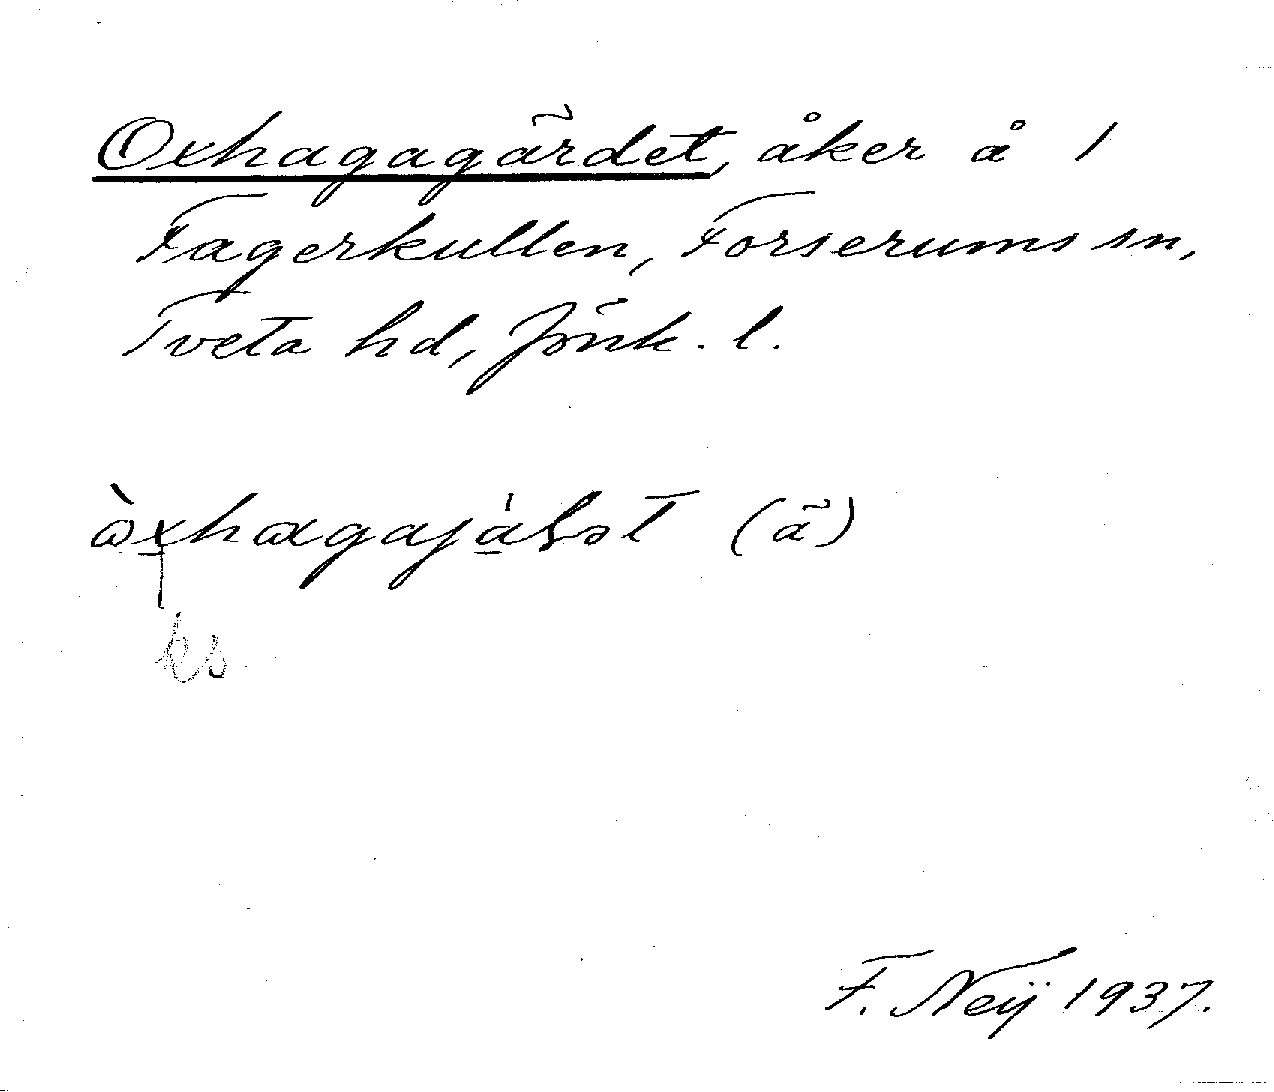 Oxhagagärdet, åker å 1
Fagerkullen, Forserums sn,
Tveta hd, Jönk. l.
òxhagajáɫət (ä)
ks
F. Neij 1937.